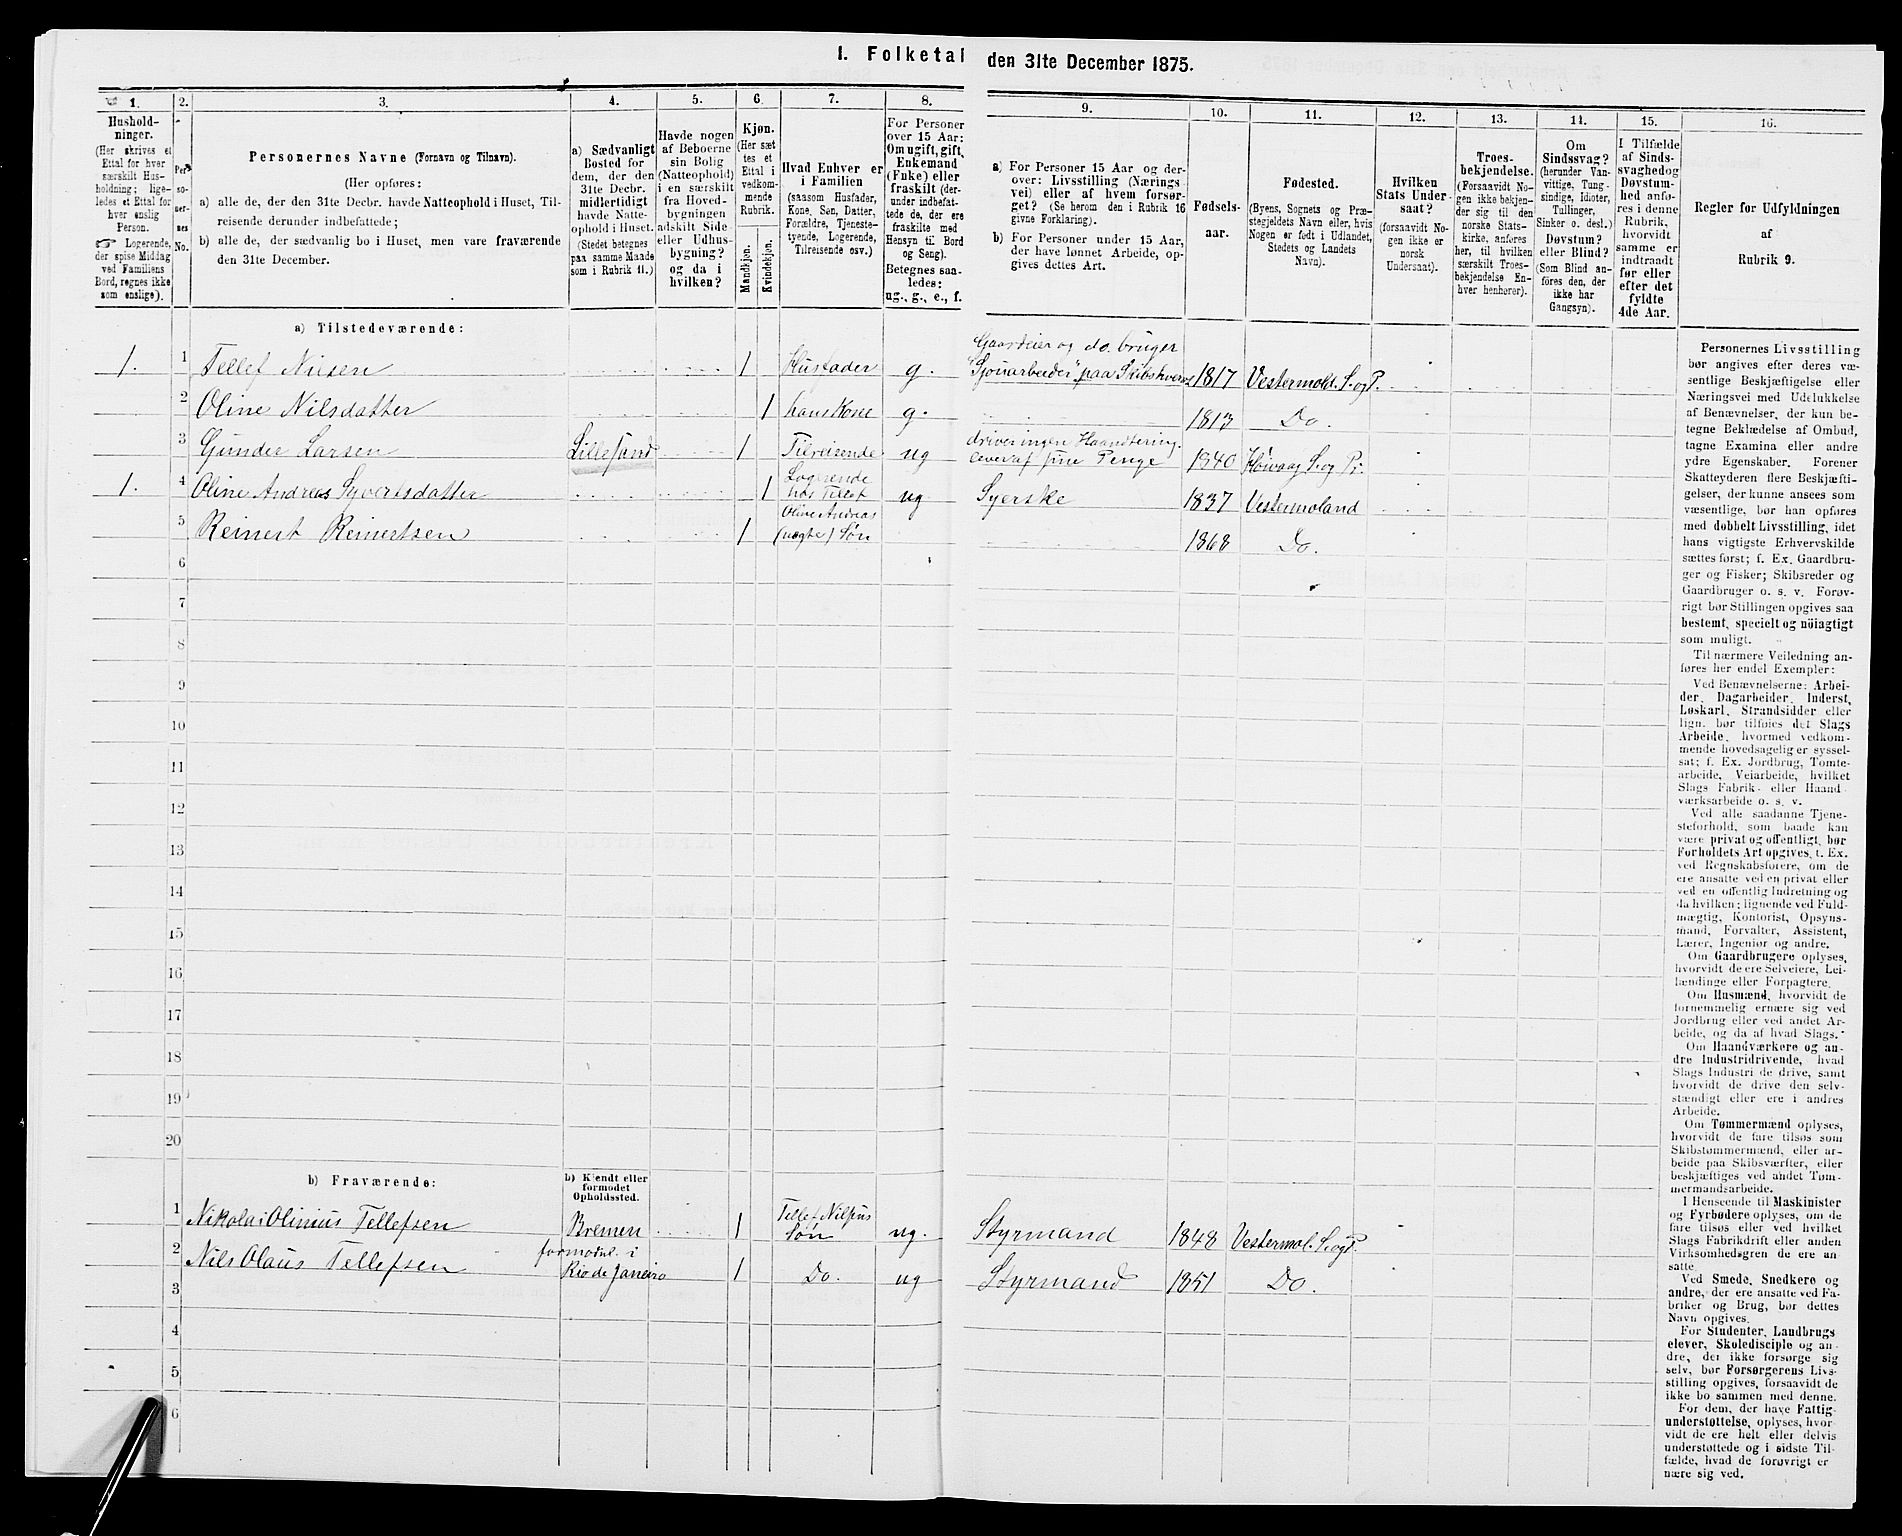 1. Folketal den 31te December 1875.
1.
Hushold-
ninger.
(Her skrives et
Ettal for hver
særskilt Hus-
holdning; lige-
ledes et Ettal for
hver enslig
Person.
☞ Logerende,
der spise Middag
ved Familiens
Bord, regnes ikke
som enslige).
2.
Per-
so-
ner-
nes
No.
3.
Personernes Navne (Fornavn og Tilnavn).
(Her opføres:
a) alle de, der den 31te Decbr. havde Natteophold i Huset, Til-
reisende derunder indbefattede;
b) alle de, der sædvanlig bo i Huset, men vare fraværende
den 31te December.
4.
a) Sædvanligt
Bosted for
dem, der den
31te Decbr.
midlertidigt
havde Natte-
ophold i Huset.
(Stedet betegnes
paa samme Maade
som i Rubrik 11.)
5.
Havde nogen
af Beboerne
sin Bolig
(Natteophold)
i en særskilt
fra Hoved-
bygningen
adskilt Side-
eller Udhus-
bygning?
og da i
hvilken?
6.
Kjøn.
(Her sæt
tes et
Ettal i
vedkom-
mende
Rubrik.
Mandkjøn.
Kvindekjøn.
7.
Hvad Enhver er
i Familien
(saasom Husfader,
Kone, Søn, Datter,
Forældre, Tjeneste-
tyende, Logerende,
Tilreisende osv.)
8.
For Personer
over 15 Aar:
Om ugift, gift,
Enkemand
(Enke) eller
fraskilt (der-
under indbefat-
tede de, der ere
fraskilte med
Hensyn til Bord
og Seng).
Betegnes saa-
ledes:
ug., g., e., f.
9.
a) For Personer 15 Aar og der-
over: Livsstilling (Nærings-
vei) eller af hvem forsør-
get? (Se herom den i Rubrik 16
givne Forklaring).
b) For Personer under 15 Aar,
der have lønnet Arbeide, op-
gives dettes Art.
10.
Fødsels-
aar.
11.
Fødested.
(Byens, Sognets og Præ-
stegjeldets Navn eller, hvis
Nogen er født i Udlandet,
Stedets og Landets
Navn).
12.
Hvilken
Stats Under-
saat?
(forsaavidt No-
gen ikke er
norsk
Undersaat).
13.
Troes-
bekjendelse.
(Forsaavidt No-
gen ikke bekjen-
der sig til den
norske Stats-
kirke, anføres
her, til hvilken
særskilt Troes-
bekjendelse En-
hver henhører).
14.
Om
Sindssvag?
(herunder Van-
vittige, Tung-
sindige, Idioter,
Tullinger,
Sinker o. desl.)
Døvstum?
eller Blind?
(Som Blind an-
føres den, der
ikke har
Gangsyn).
15.
I Tilfælde
af Sinds-
svaghed og
Døvstum-
hed anfø-
res i denne
Rubrik,
hvorvidt
samme er
indtraadt
før eller
efter det
fyldte
4de Aar.
16.
Regler for Udfyldningen
af
Rubrik 9.
a) Tilstedeværende:
1. 1 Tellef Nilsen 1 Husfader g. Gaardeier og do. bruger
"Sjouarbeider" paa Skibshverv 1817 Vestermol. S. og P.
2 Oline Nilsdatter 1 hans Kone g. 1813 Do.
3 Gunder Larsen Lillesand 1 Tilreisende ug driver ingen Haandtering.
lever af sine Penge 1840 Høivaag S. og Pr.
1. 4 Oline Andrea Syvertsdatter 1 Logerende
hos Tellef ug Syerske 1837 Vestermoland
5 Reinert Reinertsen 1 Oline Andreas
(uægte) Søn 1868 Do.
6
7
8
9
10
11
12
13
14
15
16
17
18
19
20
b) Fraværende:
b) Kjendt eller
formodet
Opholdssted.
1 Nikolai Olinius Tellefsen Bremen 1 Tellef Nilsens
Søn ug. Styrmand 1848 Vestermol. S. og P.
2 Nils Olaus Tellefsen formodel. i
Rio de Janeiro 1 Do. ug Styrmand 1851 Do.
3
4
5
6
Personernes Livsstilling
bør angives efter deres væ-
sentlige Beskjæftigelse eller
Næringsvei med Udelukkelse
af Benævnelser, der kun be-
tegne Beklædelse af Ombud,
tagne Examina eller andre
ydre Egenskaber. Forener
Skatteyderen flere Beskjæfti-
gelser, der kunne ansees som
væsentlige, bør han opføres
med dobbelt Livsstilling, idet
hans vigtigste Erhvervskilde
sættes først; f. Ex. Gaardbru-
ger og Fisker; Skibsreder og
Gaardbruger o. s. v. Forøv-
rigt bør Stillingen opgives saa
bestemt, specielt og nöiagtigt
som muligt.
Til nærmere Veiledning an-
føres her endel Exempler:
Ved Benævnelserne: Arbei-
der, Dagarbeider, Inderst,
Løskarl, Strandsidder eller
lign. bør tilføies det Slags
Arbeide, hvormed vedkom-
mende hovedsagelig er syssel-
sat; f. Ex. Jordbrug, Tomte-
arbeide, Veiarbeide, hvilket
Slags Fabrik- eller Haand-
værksarbeide o. s. v.
Ved alle saadanne Tjene-
steforhold, som baade kan
være privat og offentligt, bør
Forholdets Art opgives, f. Ex.
ved Regnskabsførere, om de
ere ansatte ved en privat eller
ved en offentlig Indretning og
da hvilken; lignende ved Fuld-
mægtig, Kontorist, Opsyns-
mand, Forvalter, Assistent,
Lærer, Ingeniør og andre.
Om Gaardbrugere oplyses,
hvorvidt de ere Selveiere, Lei-
lændinge eller Forpagtere.
Om Husmænd, hvorvidt de
fornemmelig ernære sig ved
Jordbrug eller ved andet Ar-
beide, og da af hvad Slags.
Om Haandværkere og an-
dre Industridrivende, hvad
Slags Industri de drive, samt
hvorvidt de drive den selv-
stændigt eller ere i andres
Arbeide.
Om Tømmermænd oplyses,
hvorvidt de fare tilsøs som
Skibstømmermænd, eller ar-
beide paa Skibsværfter, eller
beskjæftiges ved andet Tøm-
mermandsarbeide.
I Henseende til Maskinister
og Fyrbødere oplyses, om de
fare tilsøs eller ved hvilket
Slags Fabrikdrift eller anden
Virksomhedsgren de ere an-
satte.
Ved Smede, Snedkere og
andre, der ere ansatte ved Fa-
briker og Brug, bør dettes
Navn opgives.
For Studenter, Landbrugs-
elever, Skoledisciple og an-
dre, der ikke forsørge sig
selv, bør Forsørgerens Livs-
stilling opgives, forsaavidt de
ikke bo sammen med denne.
For dem, der have Fattig-
understøttelse, oplyses, hvor-
vidt de ere helt eller delvis
understøttede og i sidste Til-
fælde, hvad de forøvrigt er-
nære sig ved.